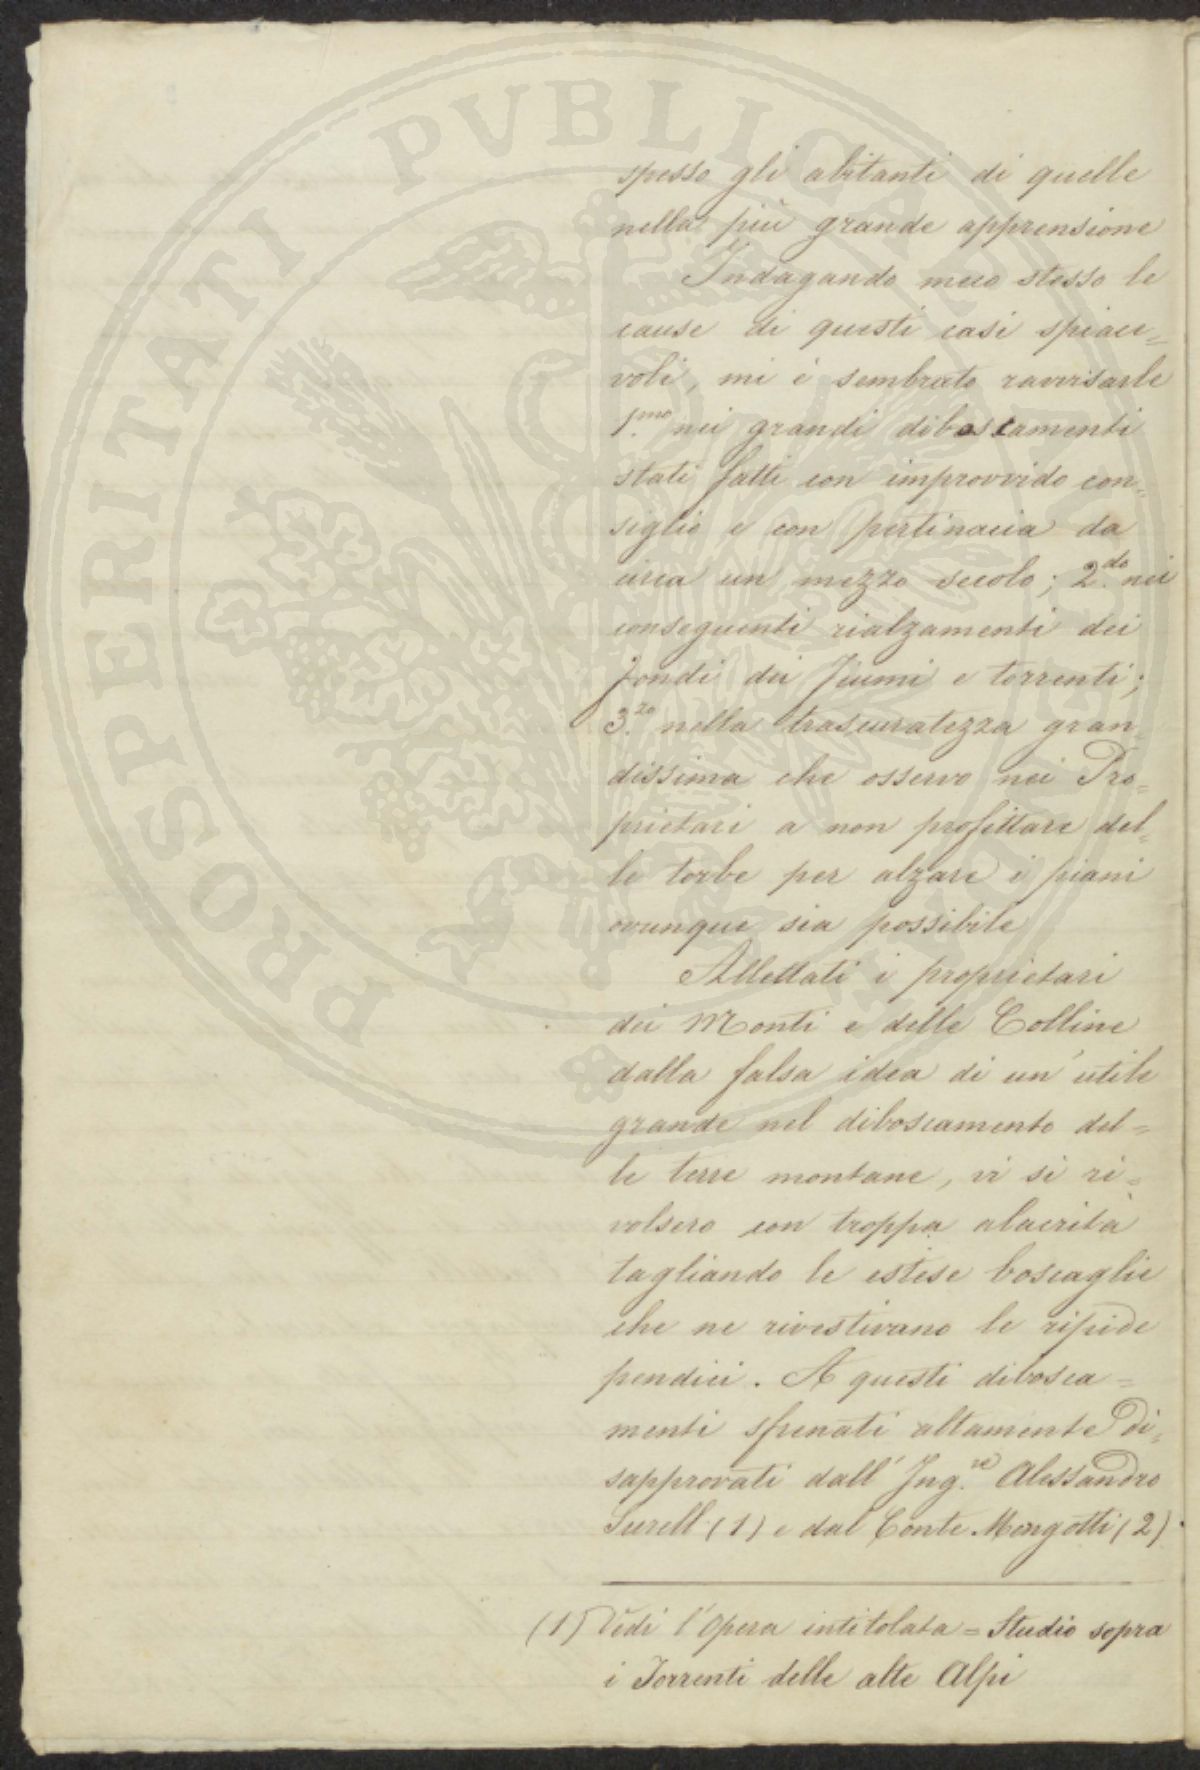 PROSPERITATI PUBLICAE AUGENDAE
spesso gli abitanti di quelle
nella più grande apprensione
Indagando meco stesso le
cause di questi casi spiace=
voli, mi è sembrato ravvisarle
1.mo nei grandi diboscamenti
stati fatti con improvvido con=
siglio e con pertinacia da
circa un mezzo secolo; 2.do nei
conseguenti rialzamenti dei
fondi dei fiumi e torrenti;
3.zo nella trascuratezza gran=
dissima che osservo nei Pro=
prietari a non profittare del=
le torbe per alzare i piani
ovunque sia possibile
Allettati i proprietari
dei Monti e delle Colline
dalla falsa idea di un'utile
grande nel diboscamento del=
le terre montane, vi si ri=
volsero con troppa alacrità
tagliando le estese boscaglie
che ne rivestivano le ripide
pendici. A questi dibosca=
menti sfrenati altamente di=
sapprovati dall'Ing.re Alessandro
Surell (1) e dal Conte Mengotti (2)
(1) Vedi l'Opera intitolata = Studio sopra
i Torrenti delle alte Alpi